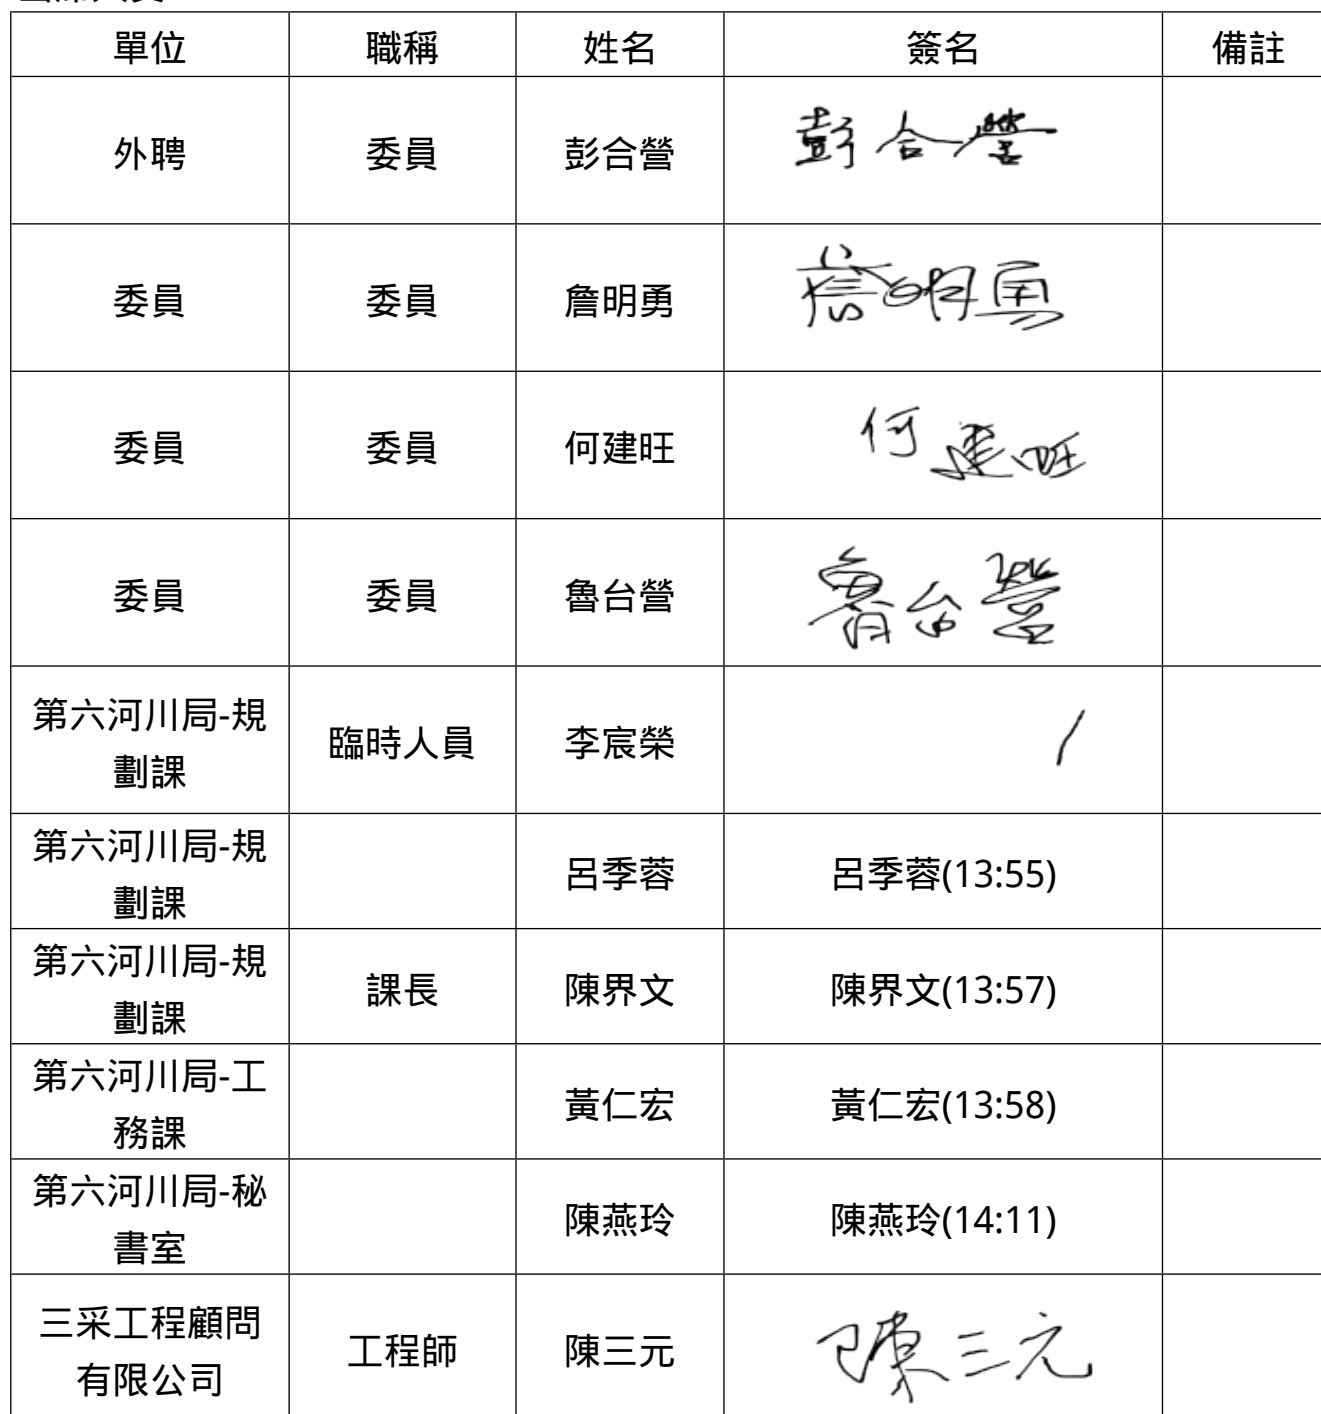 單位 職稱 姓名 簽名 備註
外聘 委員 彭合營 彭合營
委員 委員 詹明勇 詹明勇
委員 委員 何建旺 何建旺
委員 委員 魯台營 魯台營
第六河川局-規
劃課 臨時人員 李宸榮
第六河川局-規
劃課 呂季蓉 呂季蓉(13:55)
第六河川局-規
劃課 課長 陳界文 陳界文(13:57)
第六河川局-工
務課 黃仁宏 黃仁宏(13:58)
第六河川局-秘
書室 陳燕玲 陳燕玲(14:11)
三采工程顧問
有限公司 工程師 陳三元 陳三元